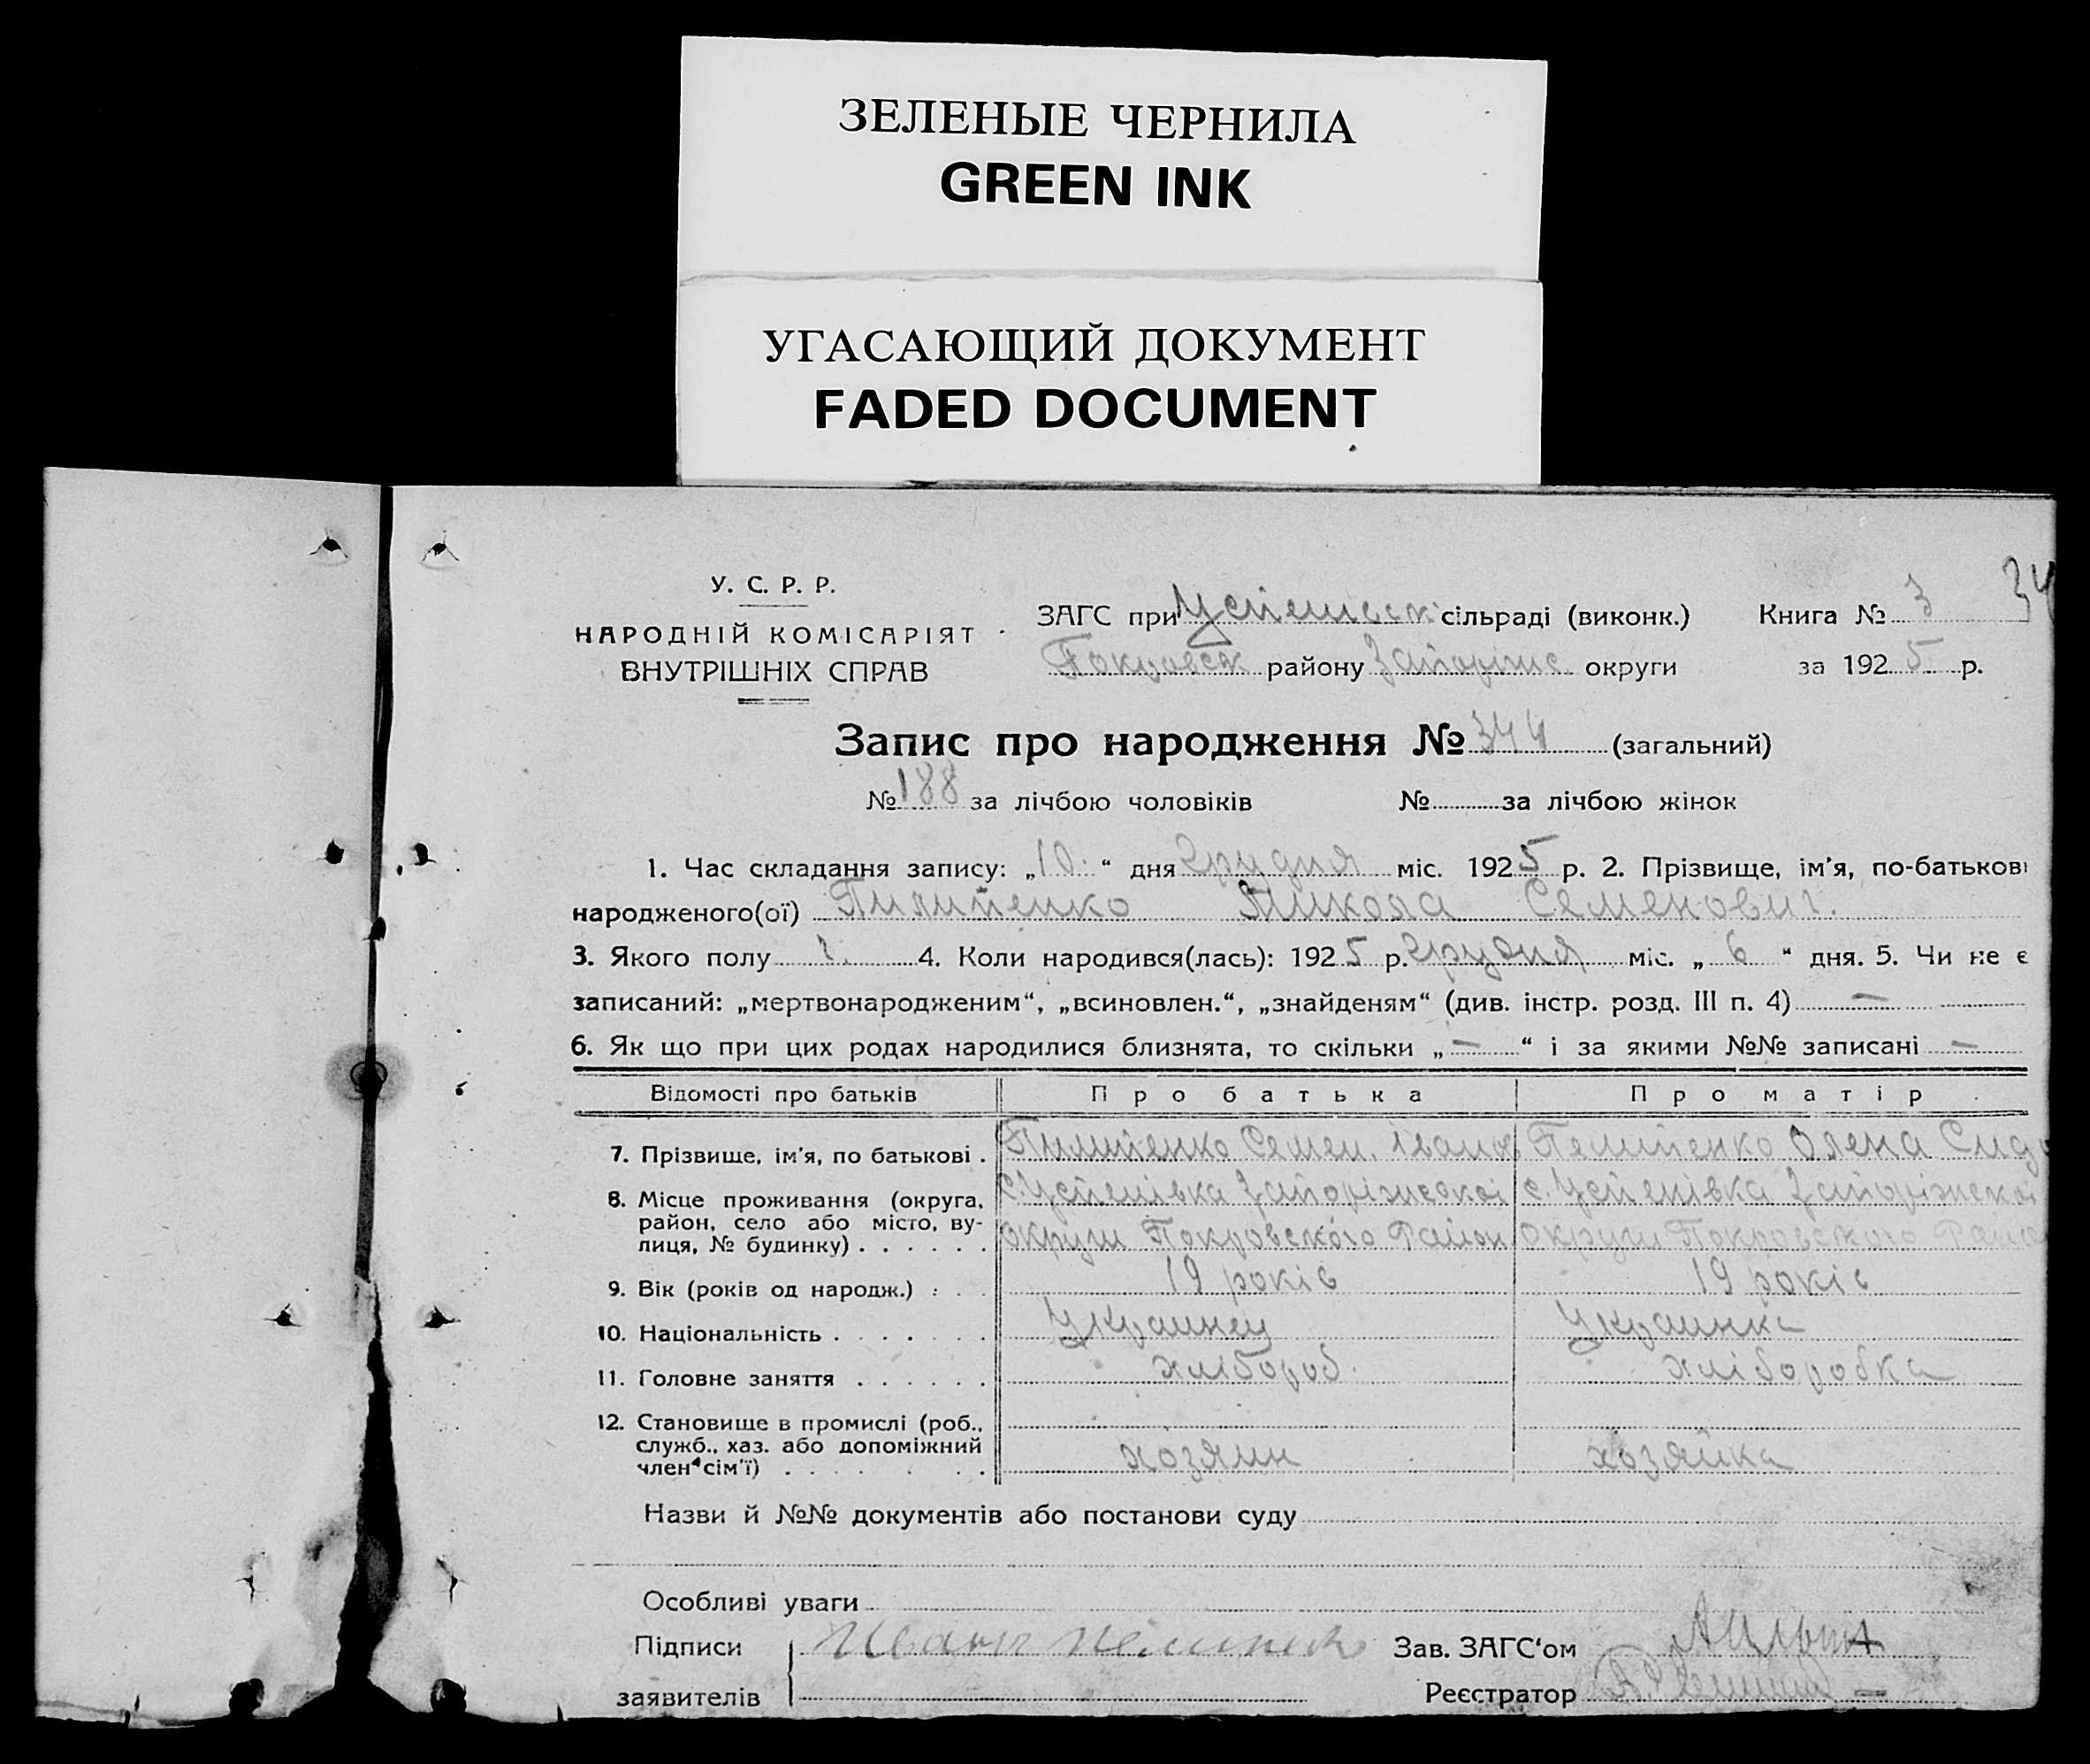 ЗЕЛЕНЫЕ ЧЕРНИЛА
GREEN INK
УГАСАЮЩИЙ ДОКУМЕНТ
FADED DOCUMENT
У. С. Р. Р.
НАРОДНІЙ КОМІСАРІЯТ
ВНУТРІШНІХ СПРАВ
ЗАГС при Успенівськ сільраді (виконк.) Книга № 3 34
Покровськ району Запоріжс округи за 1925 р.
Запис про народження № 344 (загальний)
№ 188 за лічбою чоловіків № за лічбою жінок
1. Час складання запису: „10“ дня Грудня міс. 1925 р. 2. Прізвище, ім'я, по-батькові
народженого(ої) Пилипенко Микола Семенович.
3. Якого полу ч. 4. Коли народився(лась): 1925 р. Грудня міс. „ 6 “ дня. 5. Чи не є
записаний: „мертвонародженим“, „всиновлен.“, „знайденям“ (див. інстр. розд. III п. 4) —
6. Як що при цих родах народилися близнята, то скільки „—“ і за якими №№ записані —
Відомості про батьків Про батька Про матір
7. Прізвище, ім'я, по батькові . Пилипенко Семен. Іванов Пелипенко Олена Сидо
8. Місце проживання (округа, с. Успенівка Запоріжської с. Успенівка Запоріжської
район, село або місто, ву-
лиця, № будинку) . . . . . . округи Покровського Район округи Покровського Район
9. Вік (років од народж.) : . . 19 років 19 років
10. Національність . . . . . . . Украинец Украинка
11. Головне заняття . . . . . . хлібороб. хліборобка
12. Становище в промислі (роб.,
служб., хаз. або допоміжний
член сім'ї) . . . . . . . . хозяин хозяйка
Назви й №№ документів або постанови суду
Особливі уваги
Підписи Иван Зав. ЗАГС'ом
заявителів Реєстратор